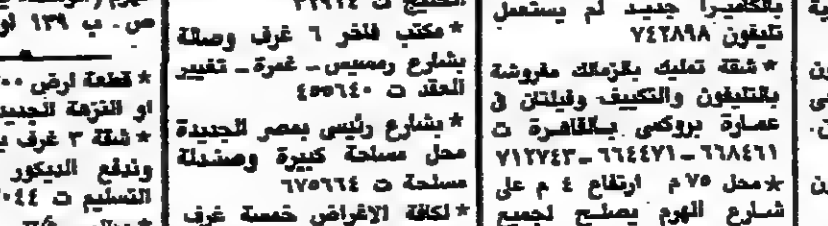 بالكاميرا جديد لم يستعمل
تليفون ٧٤٢٨٩٨
* شقة تمليك بالزمالك مفروشة
بالتليفون والتكييف وفيلتان في
عمارة بروكس بالقاهرة ت
٦٦٨٤٦١ـ ٦٦٤٤٧١ـ ٧١٢٧٤٣
* محل ٧٥ م ارتفاع ٤ م على
شارع الهرم يصلح لجميع
* مكتب فاخر ٦ غرف وصالة
بشارع رمسيس ـ غمرة ـ تغيير
العقد ت ٤٥٥٦٤٠
* بشارع رئيسى بمصر الجديدة
محل مساحة كبيرة وصيدلة
مساحة ت ٦٧٥٦٦٤
* لكافة الاغراض خمسة غرف
ص . ب ١٣٩ او
* قطعة ارض
او النزهة الجديد
* شقة ٣ غرف
وندفع الديكور
التسليم ت